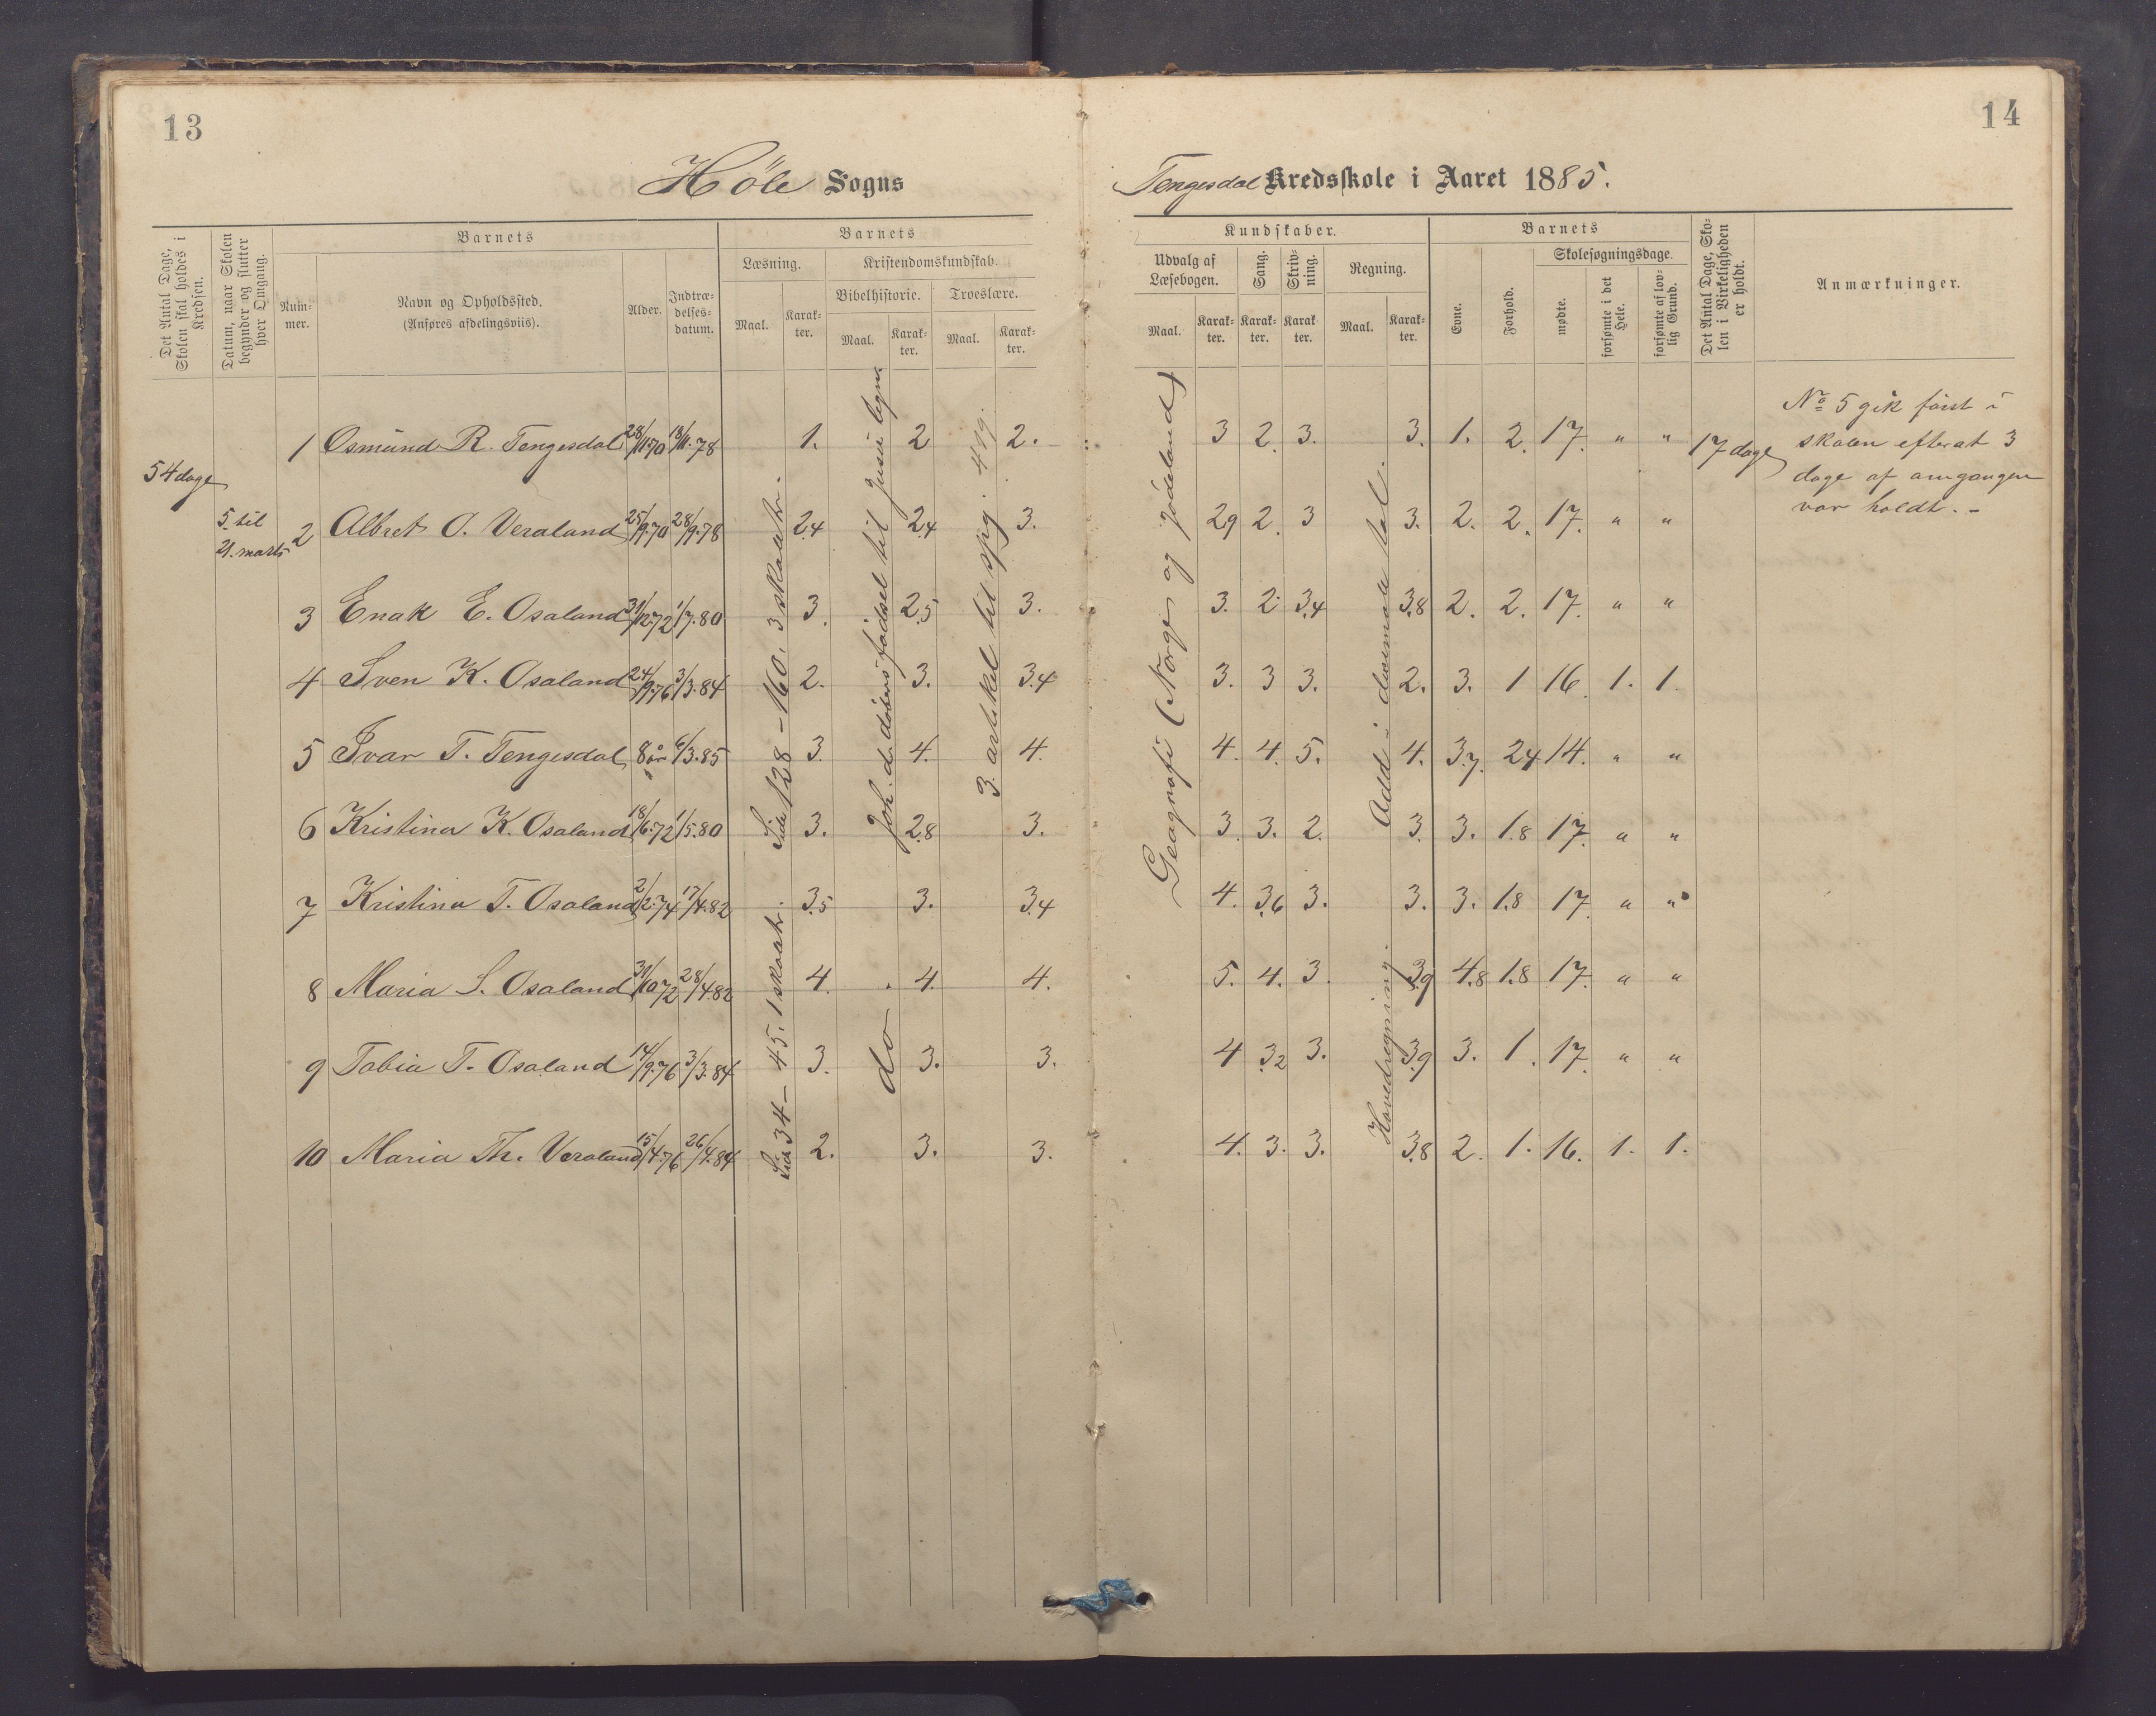 13
14
Höle Sogns
Tengesdal Kredsskole i Aaret 1885.
Det Antal Dage, Skolen skal holdes i Kredsen.
Datum, naar Skolen begynder og slutter hver Omgang.
Num-
mer.
Barnets
Navn og Opholdssted.
(Anføres afdelingsviis).
Alder.
Indtræ-
delses-
datum.
Barnets
Læsning.
Maal.
Karak-
ter.
Kristendomskundskab.
Bibelhistorie.
Maal.
Karak-
ter.
Troeslære.
Maal.
Karak-
ter.
Kundskaber.
Udvalg af
Læsebogen.
Maal.
Karak-
ter.
Sang.
Karak-
ter.
Skriv-
ning.
Karak
ter.
Regning.
Maal.
Karak-
ter.
Barnets
Evne.
Forhold.
Skolesøgningsdage.
mødte.
forsømte i det Hele.
forsømte af lov-
lig Grund.
Det Antal Dage, Sko-
len i Virkeligheden
er holdt.
Anmærkninger.
54 dage
5. til
21. marts
1 Osmund R. Tengesdal 28/11.70 18/11.78 1. 2 2. 3 2. 3. 3. 1. 2. 17. " "
2 Albret O. Veraland 25/9.70 28/9.78 2.4 2.4 3. 2.9 2. 3 3. 2. 2. 17. " "
3 Enak E. Osaland 31/12.72 1/7.80 3. 2.5 3. 3. 2 3.4 3.8 2. 2. 17. " "
4 Sven K. Osaland 24/9.76 3/3.84 2. 3. 3.4 3. 3 3. 2. 3. 1 16. 1. 1.
5 Ivar T. Tengesdal 8 år 6/3.85 3. 4. 4. 4. 4. 5. 4. 3.7. 2.4 14. " "
6 Kristina K. Osaland 18/6.72 1/5.80 3. 2.8 3. 3. 3. 2. 3. 3. 1.8 17. " "
7 Kristina T. Osaland 2/2.74 17/4.82 3.5 3. 3.4 4. 3.6 3. 3. 3. 1.8 17. " "
8 Maria S. Osaland 31/10.72 28/4.82 4. 4. 4. 5. 4. 3. 3.9 4.8 1.8 17. " "
9 Tobia T. Osaland 14/9.76 3/3.84 3. 3. 3. 4 3.2 3. 3.9 3. 1. 17. " "
10 Maria Th. Veraland 15/4.76 26/4.84 2. 3. 3. 4. 3. 3. 3.8 2. 1. 16. 1. 1.
Side 128 – 160. 3 skoletr.
Side 34 – 45. 1 skoletr.
Joh. d. døbers fødsel til Jesu legn.
do
3. artikel til spg. 419.
Geagrafi (Norge og jødeland)
Add i desimale tal.
Hovedregning.
17 dage
No 5 gik først i
skolen efterat 3
dage af omgangen
var holdt. –